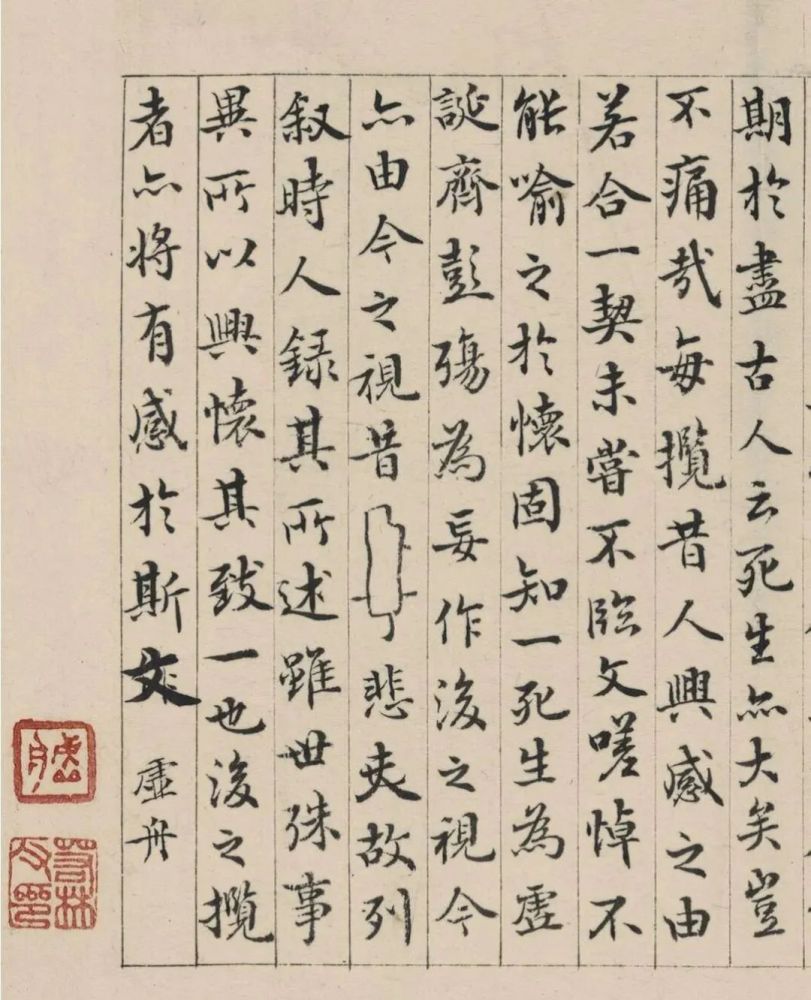 期於盡古人云死生亦大矣豈
不痛哉每攬昔人興感之由
若合一契未嘗不臨文嗟悼不
能喻之於懷固知一死生為虛
誕齊彭殤為妄作後之視今
亦由今之視昔 悲夫故列
叙時人録其所述雖世殊事
異所以興懷其致一也後之攬
者亦將有感於斯文 虛舟